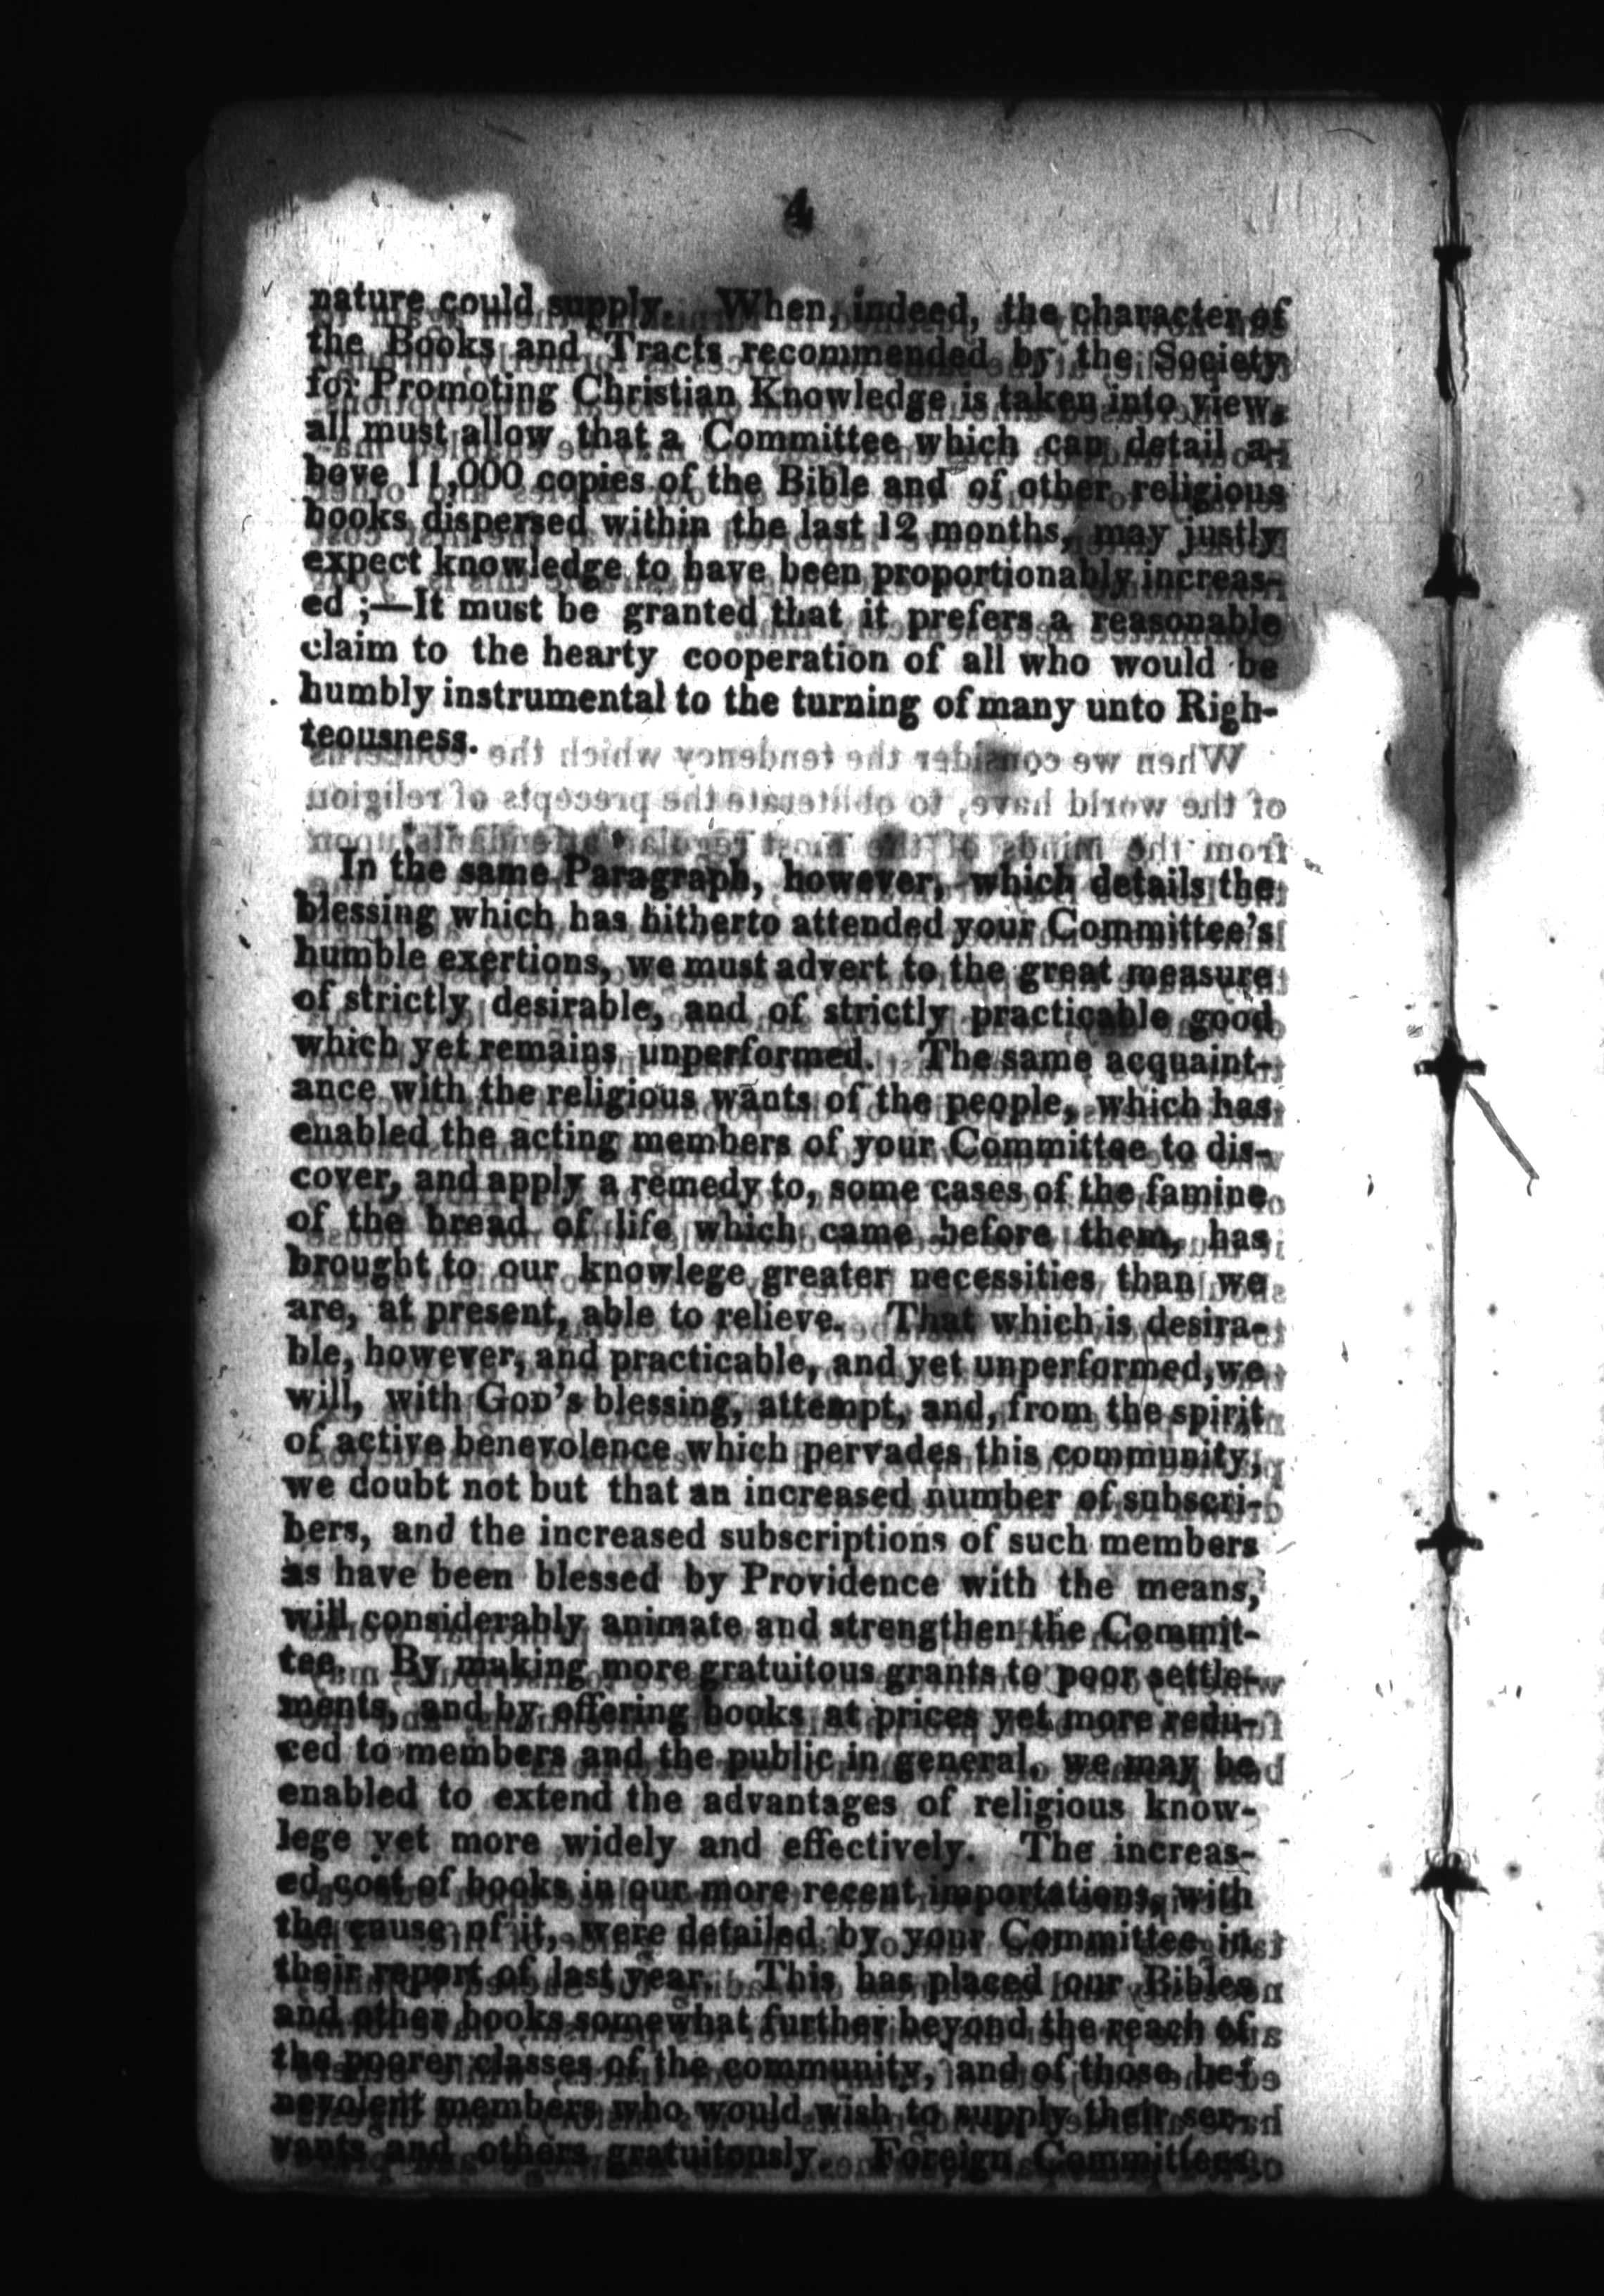 4
nature could supply. When, indeed, the character of
the Books and Tracts recommended by the Society
for Promoting Christian Knowledge is taken into view,
all must allow that a Committee which can detail a-
bove 11,000 copies of the Bible and of other religious
books dispersed within the last 12 months, may justly
expect knowledge to have been proportionably increas-
ed ;—It must be granted that it prefers a reasonable
claim to the hearty cooperation of all who would be
humbly instrumental to the turning of many unto Righ-
teousness.
In the same Paragraph, however, which details the
blessing which has hitherto attended your Committee's
humble exertions, we must advert to the great measure
of strictly desirable, and of strictly practicable good
which yet remains unperformed. The same acquaint-
ance with the religious wants of the people, which has
enabled the acting members of your Committee to dis-
cover, and apply a remedy to, some cases of the famine
of the bread of life which came before them, has
brought to our knowlege greater necessities than we
are, at present, able to relieve. That which is desira-
ble, however, and practicable, and yet unperformed, we
will, with GOD's blessing, attempt, and, from the spirit
of active benevolence which pervades this community,
we doubt not but that an increased number of subscri-
bers, and the increased subscriptions of such members
as have been blessed by Providence with the means,
will considerably animate and strengthen the Commit-
tee. By making more gratuitous grants to poor settle-
ments, and by offering books at prices yet more redu-
ced to members and the public in general, we may be
enabled to extend the advantages of religious know-
lege yet more widely and effectively. The increas-
ed cost of books in our more recent importations, with
the cause of it, were detailed by your Committee in
their report of last year. This has placed our Bibles
and other books somewhat further beyond the reach of
the poorer classes of the community, and of those be-
nevolent members who would wish to supply their ser-
vants and others gratuitously. Foreign Committees,